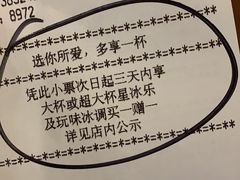 8972
选你所爱，多享一杯
凭此小票次日起三天内享
大杯或超大杯星冰乐
及玩味冰调买一赠一
详见店内公示